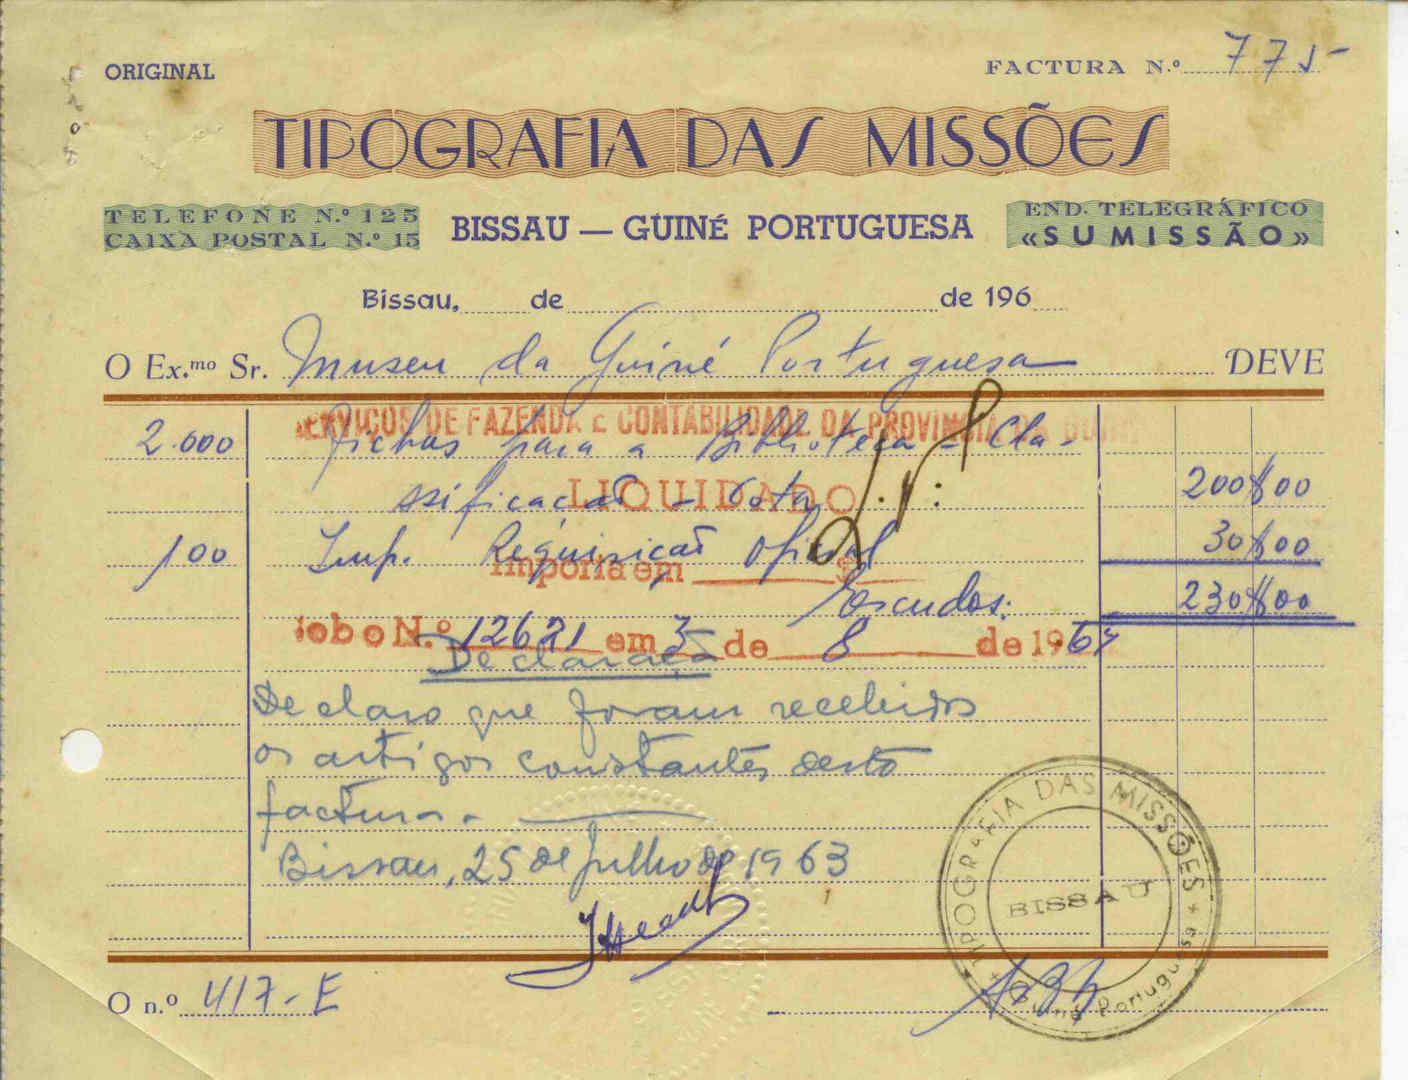 ORIGINAL
FACTURA N.º 775
TIPOGRAFIA DAS MISSÕES
TELEFONE N.º 125
CAIXA POSTAL N.º 15
BISSAU — GUINÉ PORTUGUESA
END. TELEGRÁFICO
«SUMISSÃO»
Bissau, de de 196
O Ex.mo Sr. Museu da Guiné Portuguesa DEVE
SERVIÇOS DE FAZENDA E CONTABILIDADE DA PROVINCIA DA GUINÉ
2.000 fichas para a Biblioteca - Cla-
ssificação - Cota 200$00
LIQUIDADO
100 Imp. Requisição Oficial 30$00
Importa em $
Escudos: 230$00
N.º 12621 em 3 de 8 de 1963
Declaração
Declaro que foram recebidos
os artigos constantes desta
factura.
Bissau, 25 de Julho de 1963
TIPOGRAFIA DAS MISSÕES
BISSAU
Guiné Portuguesa
O n.º 417-E